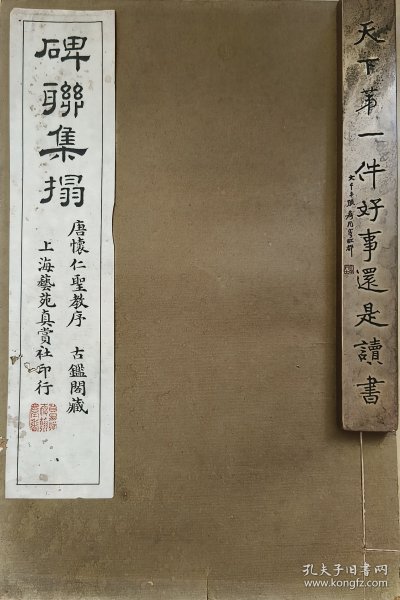 碑聯集搨
唐懷仁聖教序 古鑑閣藏
上海藝苑真賞社印行
天下第一件好事還是讀書
孔夫子旧书网
www.kongfz.com